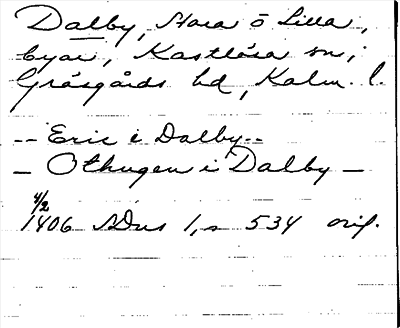 Dalby, Stora o Lilla,
byar, Kastlösa sn,
Gräsgårds hd, Kalm. l.
-- Eric i Dalby --
- Othugen i Dalby -
4/2
1406 SDns 1, s 534 orig.